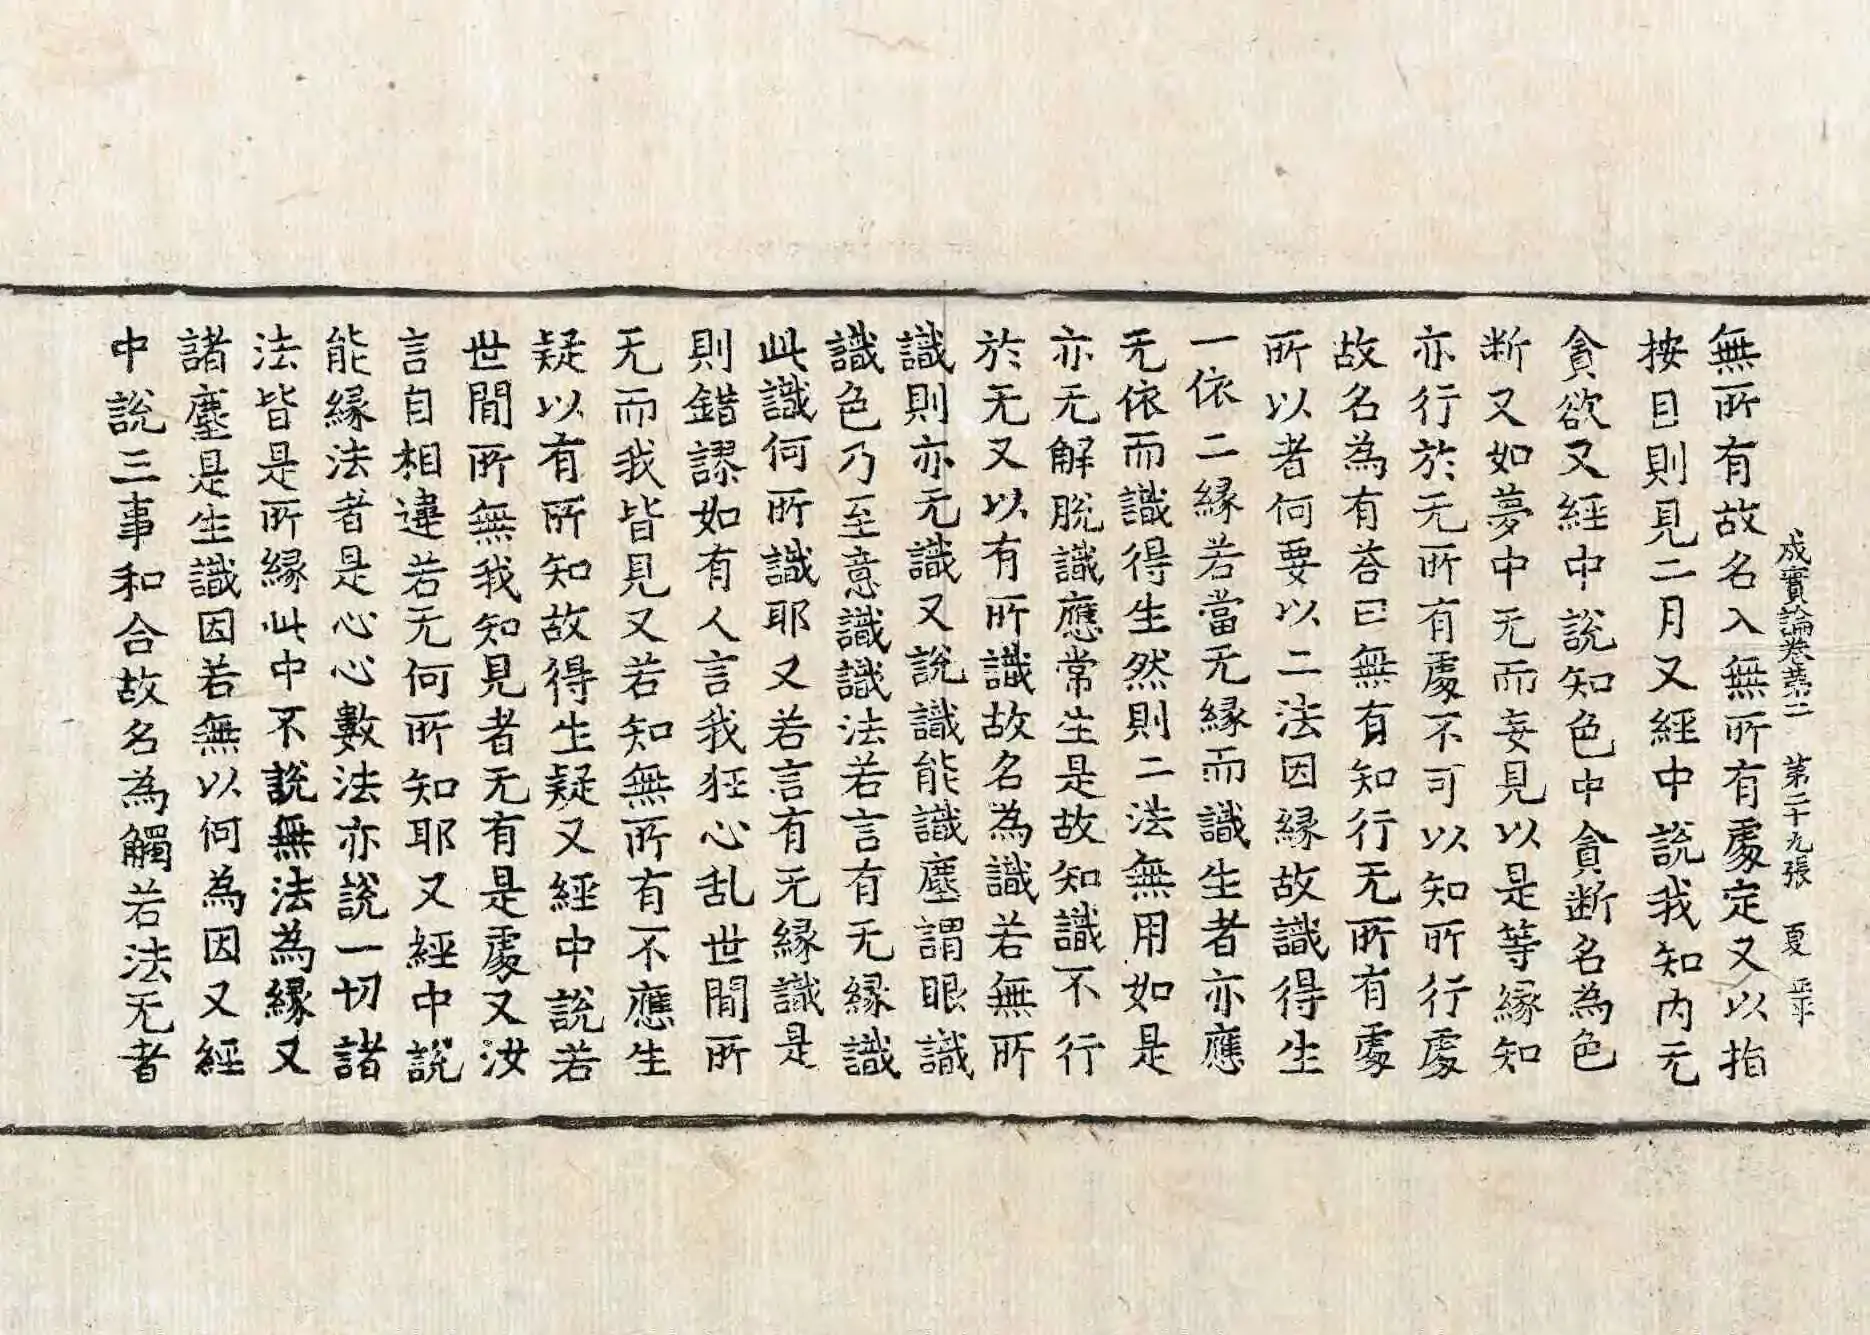 成實論卷第二　第二十九張　夏
無所有故名入無所有處定又以指
按目則見二月又經中說我知內无
貪欲又經中說知色中貪断名為色
断又如夢中无而妄見以是等緣知
亦行於无所有處不可以知所行處
故名為有荅曰無有知行无所有處
所以者何要以二法因緣故識得生
一依二緣若當无緣而識生者亦應
无依而識得生然則二法無用如是
亦无解脫識應常生是故知識不行
於无又以有所識故名為識若無所
識則亦无識又說識能識塵謂眼識
識色乃至意識識法若言有无緣識
此識何所識耶又若言有无緣識是
則錯謬如有人言我狂心乱世間所
无而我皆見又若知無所有不應生
疑以有所知故得生疑又經中說若
世間所無我知見者无有是處又汝
言自相違若无何所知耶又經中說
能緣法者是心心數法亦說一切諸
法皆是所緣此中不說無法為緣又
諸塵是生識因若無以何為因又經
中說三事和合故名為觸若法无者